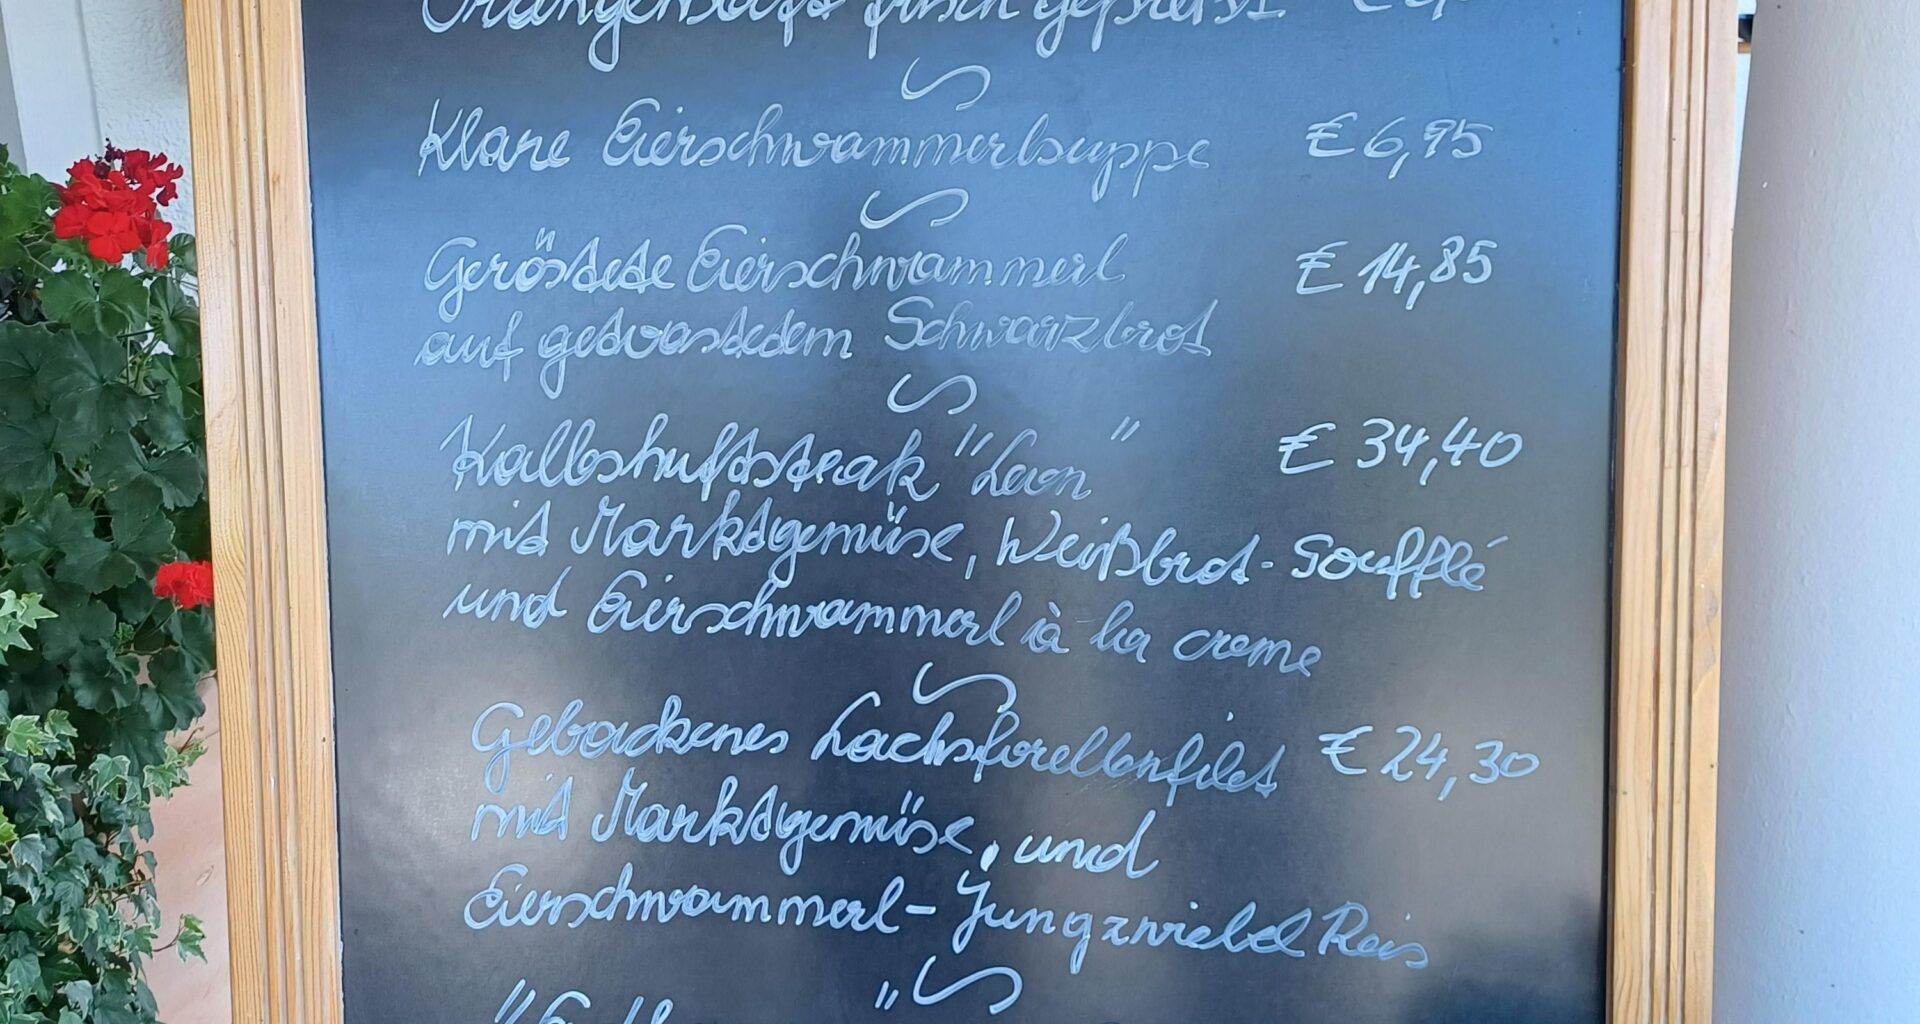 Orangensaft frisch gepresst €
Klare Eierschwammerlsuppe € 6,95
Geröstete Eierschwammerl € 14,85
auf getoastetem Schwarzbrot
Kalbshuftsteak "Leon" € 34,40
mit Marktgemüse, Weißbrot-Soufflé
und Eierschwammerl à la creme
Gebackenes Lachsforellenfilet € 24,30
mit Marktgemüse, und
Eierschwammerl-Jungzwiebel Reis